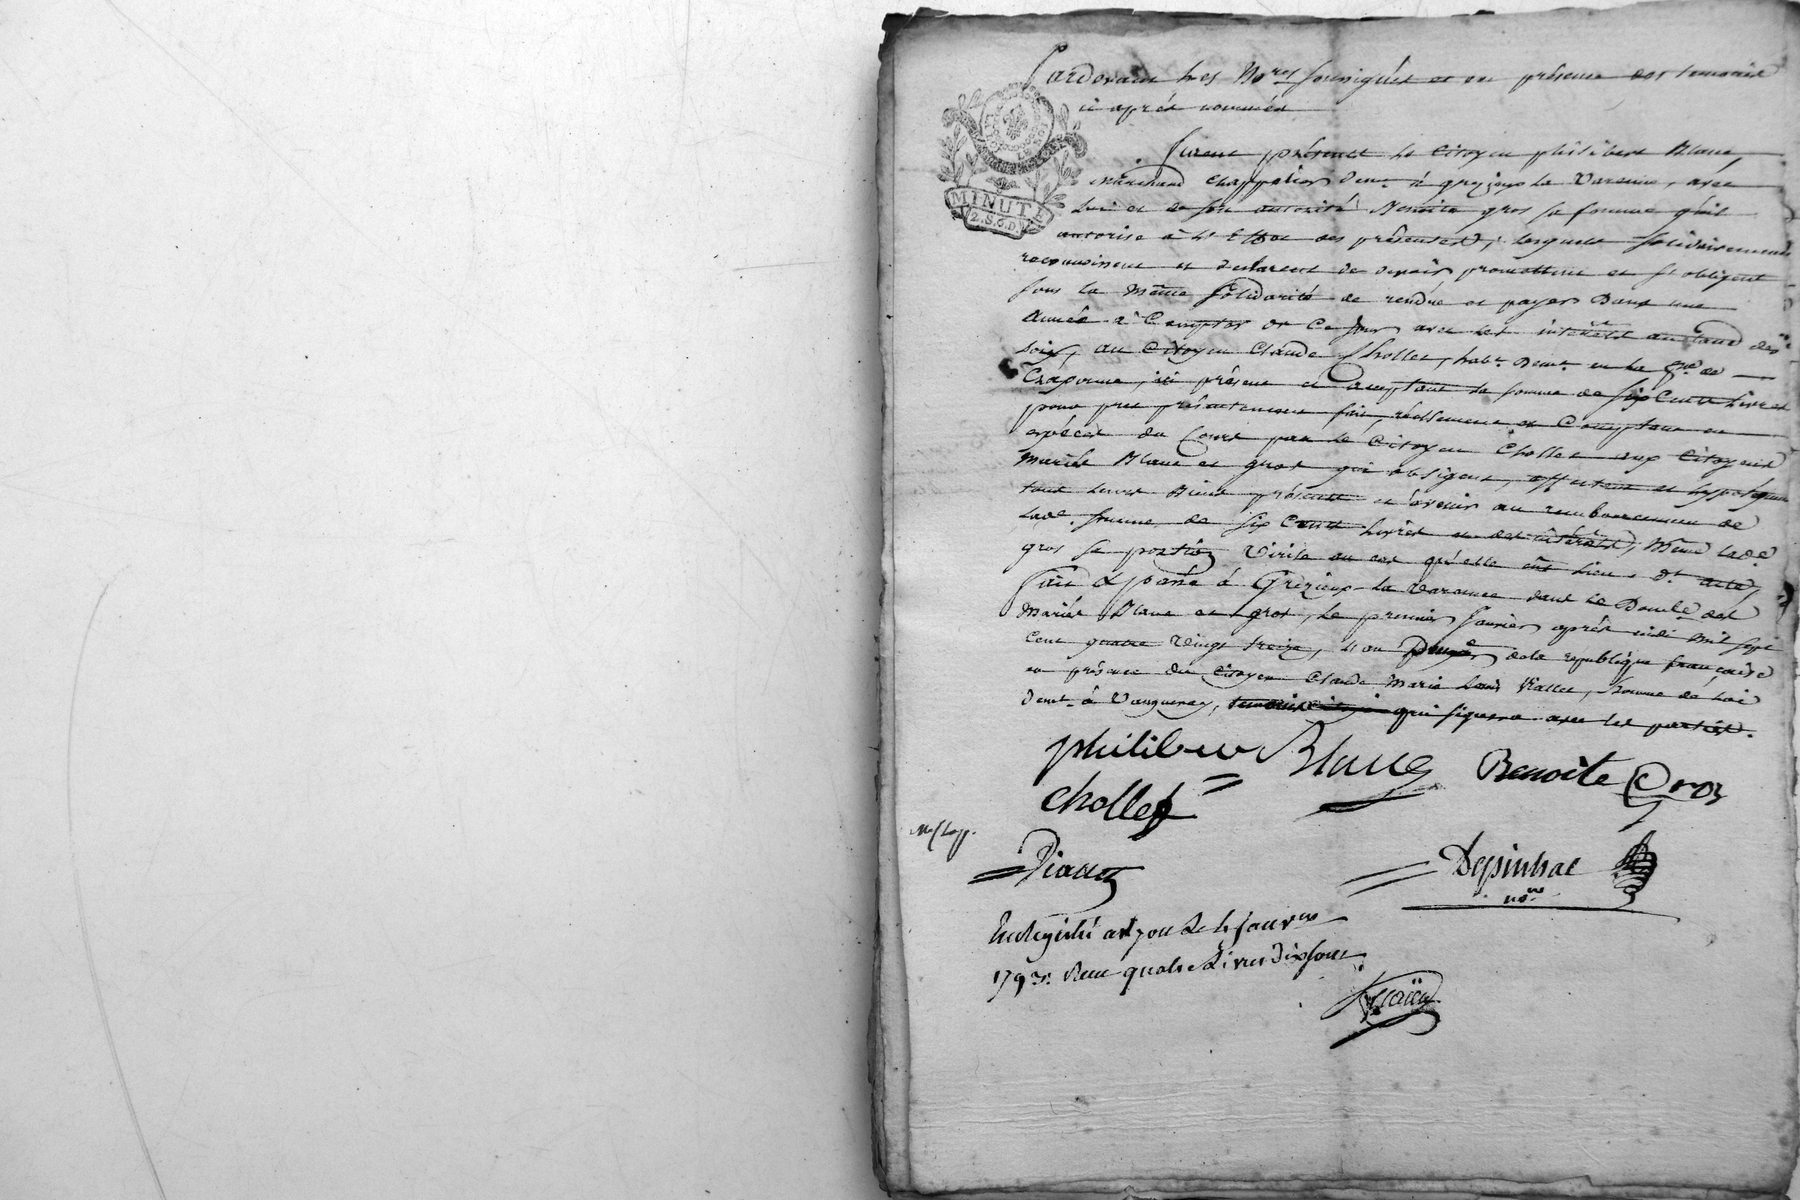 Pardevant les No.res soussignés et en présence des temoins
ci après nommés
MINUTE
2.S.6.D.
Furent présents le Citoyen philibert Blanc,
marchand Chappellier dem.t à grezieux la Varenne, avec
lui et de son autorité Benoite gros sa femme qu'il
autorise à l'Effet des présentes, lesquels solidairement
reconnoissent et declarent de devoir, promettent et s'obligent
sous la Même solidarité de rendre et payer Dans une
Année à Compter de Ce jour avec les intérêts au taux des
loix, au Citoyen Claude Chollet, hab.t Dem.t en la
Craponne, ici présent et acceptant la somme de six Cents livres
pour pret présentement fait, réellement et Comptant en
espèces du Cours par le Citoyen Chollet aux Citoyens
Mariés Blanc et gros qui obligent, affectent et hypotèquent
tous leurs Biens présents et àvenir au remboursement de
lad.e somme de six Cents livres et des intérêts, Même lad.e
gros sa portion Virile au cas qu'elle eût lieu. D.t acte
fait & passé à Grézieux la Varenne dans le Domic.le des
Mariés Blanc et gros, le premier Janvier après midi mil sept
Cent quatre Vingt treize, l'an Deuxe de la république française
en présence du Citoyen Claude Marie Louis Viallet, homme de loi
dem.t à Vaugneray, qui signera avec les parties.
philiber Blanc Benoite Gros
chollet
Depinhac
no.re
Enregistré a Lyon le 4 janv.er
1793. Reçu quatre Livres dix sous